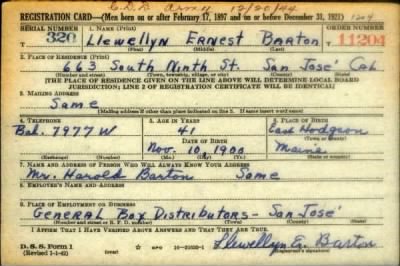 12/20/44
REGISTRATION CARD—(Men born on or after February 17, 1897 and on or before December 31, 1921)
SERIAL NUMBER 1. NAME (Print) ORDER NUMBER
320 Llewellyn Ernest Barton 11204
(First) (Middle) (Last)
2. PLACE OF RESIDENCE (Print)
663 South Ninth St. San José Cal
(Number and street) (Town, township, village, or city) (County) (State)
[THE PLACE OF RESIDENCE GIVEN ON THE LINE ABOVE WILL DETERMINE LOCAL BOARD
JURISDICTION; LINE 2 OF REGISTRATION CERTIFICATE WILL BE IDENTICAL]
3. MAILING ADDRESS
Same
[Mailing address if other than place indicated on line 2. If same insert word same]
4. TELEPHONE 5. AGE IN YEARS 6. PLACE OF BIRTH
Bal. 7977W 41 East Hodgson
DATE OF BIRTH (Town or county)
Nov. 10, 1900 Maine
(Exchange) (Number) (Mo.) (Day) (Yr.) (State or country)
7. NAME AND ADDRESS OF PERSON WHO WILL ALWAYS KNOW YOUR ADDRESS
Mr. Harold Barton Same
8. EMPLOYER'S NAME AND ADDRESS
General Box Distributors - San José
9. PLACE OF EMPLOYMENT OR BUSINESS
(Number and street or R. F. D. number) (Town) (County) (State)
I AFFIRM THAT I HAVE VERIFIED ABOVE ANSWERS AND THAT THEY ARE TRUE.
D. S. S. Form 1
(Revised 1-1-42) GPO 16-21630-1 Llewellyn E. Barton
(Registrant's signature)